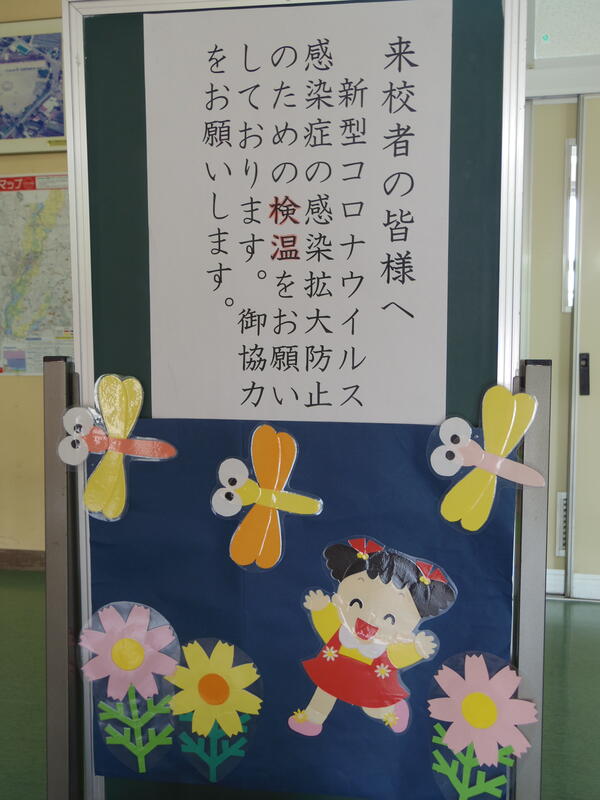 来校者の皆様へ
新型コロナウイルス
感染症の感染拡大防止
のための検温をお願い
しております。御協力
をお願いします。
マップ